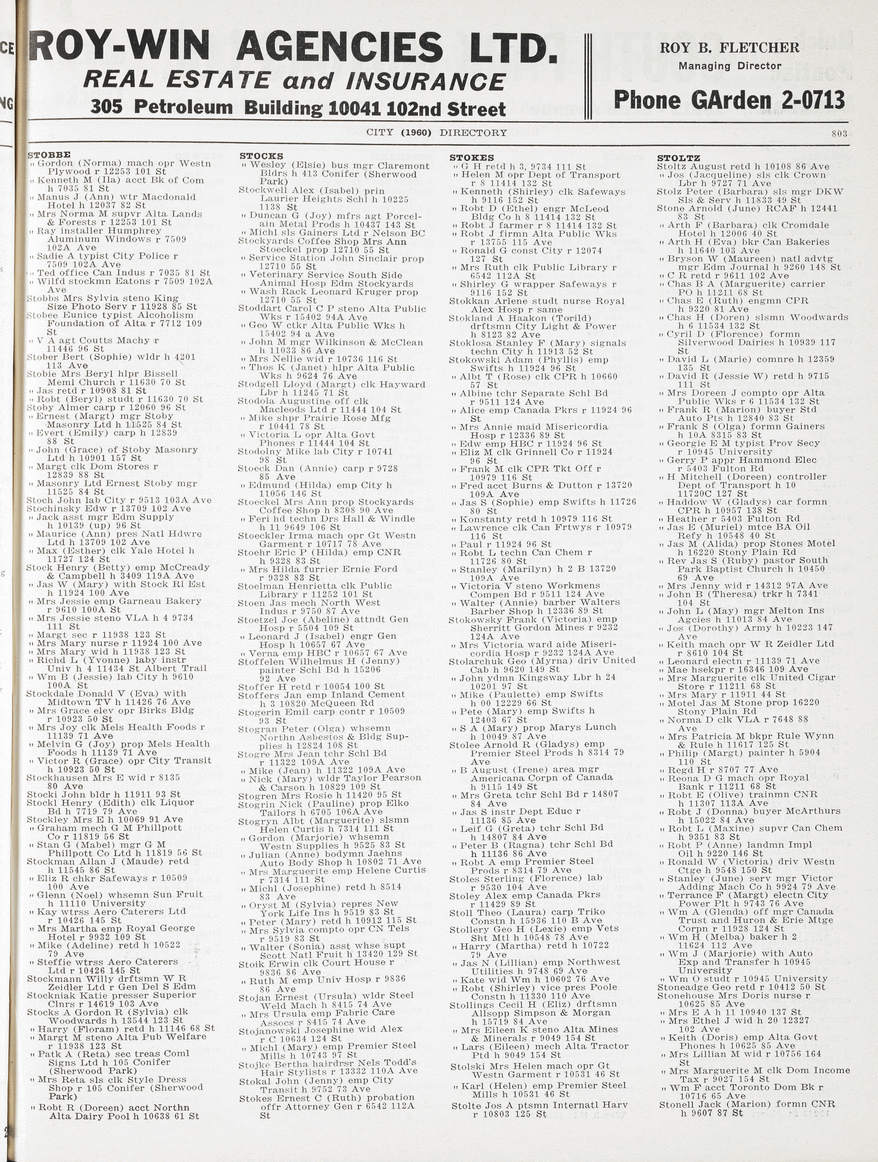 ROY-WIN AGENCIES LTD.
REAL ESTATE and INSURANCE
305 Petroleum Building 10041 102nd Street
ROY B. FLETCHER
Managing Director
Phone GArden 2-0713
CITY (1960) DIRECTORY
803
STOBBE
" Gordon (Norma) mach opr Westn
Plywood r 12253 101 St
" Kenneth M (Ila) acct Bk of Com
h 7035 81 St
" Manus J (Ann) wtr Macdonald
Hotel h 12037 82 St
" Mrs Norma M supvr Alta Lands
& Forests r 12253 101 St
" Ray installer Humphrey
Aluminum Windows r 7509
102A Ave
" Sadie A typist City Police r
7509 102A Ave
" Ted office Can Indus r 7035 81 St
" Wilfd stockmn Eatons r 7509 102A
Ave
Stobbs Mrs Sylvia steno King
Size Photo Serv r 11928 85 St
Stobee Eunice typist Alcoholism
Foundation of Alta r 7712 109
St
" V A agt Coutts Machy r
11446 96 St
Stober Bert (Sophie) wldr h 4201
113 Ave
Stobie Mrs Beryl hlpr Bissell
Meml Church r 11630 70 St
" Jas retd r 10908 81 St
" Robt (Beryl) studt r 11630 70 St
Stoby Almer carp r 12060 96 St
" Ernest (Margt) mgr Stoby
Masonry Ltd h 11525 84 St
" Evert (Emily) carp h 12839
88 St
" John (Grace) of Stoby Masonry
Ltd h 10901 157 St
" Margt clk Dom Stores r
12839 88 St
" Masonry Ltd Ernest Stoby mgr
11525 84 St
Stoch John lab City r 9513 103A Ave
Stochinsky Edw r 13709 102 Ave
" Jack asst mgr Edm Supply
h 10139 (up) 96 St
" Maurice (Ann) pres Natl Hdwre
Ltd h 13709 102 Ave
" Max (Esther) clk Yale Hotel h
11727 124 St
Stock Henry (Betty) emp McCready
& Campbell h 3409 119A Ave
" Jas W (Mary) with Stock Rl Est
h 11924 100 Ave
" Mrs Jessie emp Garneau Bakery
r 9610 100A St
" Mrs Jessie steno VLA h 4 9734
111 St
" Margt sec r 11938 123 St
" Mrs Mary nurse r 11924 100 Ave
" Mrs Mary wid h 11938 123 St
" Richd L (Yvonne) laby instr
Univ h 4 11434 St Albert Trail
" Wm B (Jessie) lab City h 9610
100A St
Stockdale Donald V (Eva) with
Midtown TV h 11426 76 Ave
" Mrs Grace elev opr Birks Bldg
r 10923 50 St
" Mrs Joy clk Mels Health Foods r
11139 71 Ave
" Melvin G (Joy) prop Mels Health
Foods h 11139 71 Ave
" Victor R (Grace) opr City Transit
h 10923 50 St
Stockhausen Mrs E wid r 8135
80 Ave
Stocki John bldr h 11911 93 St
Stockl Henry (Edith) clk Liquor
Bd h 7719 79 Ave
Stockley Mrs E h 10069 91 Ave
" Graham mech G M Phillpott
Co r 11819 56 St
" Stan G (Mabel) mgr G M
Phillpott Co Ltd h 11819 56 St
Stockman Allan J (Maude) retd
h 11545 86 St
" Eliz R chkr Safeways r 10509
100 Ave
" Glenn (Noel) whsemn Sun Fruit
h 11110 University
" Kay wtrss Aero Caterers Ltd
r 10426 145 St
" Mrs Martha emp Royal George
Hotel r 9932 109 St
" Mike (Adeline) retd h 10522
79 Ave
" Steffie wtrss Aero Caterers
Ltd r 10426 145 St
Stockmann Willy drftsmn W R
Zeidler Ltd r Gen Del S Edm
Stockniak Katie presser Superior
Clnrs r 14619 103 Ave
Stocks A Gordon R (Sylvia) clk
Woodwards h 13544 123 St
" Harry (Floram) retd h 11146 68 St
" Margt M steno Alta Pub Welfare
r 11938 123 St
" Patk A (Reta) sec treas Coml
Signs Ltd h 105 Conifer
(Sherwood Park)
" Mrs Reta sls clk Style Dress
Shop r 105 Conifer (Sherwood
Park)
" Robt R (Doreen) acct Northn
Alta Dairy Pool h 10638 61 St
STOCKS
" Wesley (Elsie) bus mgr Claremont
Bldrs h 413 Conifer (Sherwood
Park)
Stockwell Alex (Isabel) prin
Laurier Heights Schl h 10225
1138 St
" Duncan G (Joy) mfrs agt Porcel-
ain Metal Prods h 10437 143 St
" Michl sls Gainers Ltd r Nelson BC
Stockyards Coffee Shop Mrs Ann
Stoeckel prop 12710 55 St
" Service Station John Sinclair prop
12710 55 St
" Veterinary Service South Side
Animal Hosp Edm Stockyards
" Wash Rack Leonard Kruger prop
12710 55 St
Stoddart Carol C P steno Alta Public
Wks r 15402 94A Ave
" Geo W ctkr Alta Public Wks h
15402 94 a Ave
" John M mgr Wilkinson & McClean
h 11033 86 Ave
" Mrs Nellie wid r 10736 116 St
" Thos K (Janet) hlpr Alta Public
Wks h 9624 76 Ave
Stodgell Lloyd (Margt) clk Hayward
Lbr h 11245 71 St
Stodola Augustine off clk
Macleods Ltd r 11444 104 St
" Mike shpr Prairie Rose Mfg
r 10441 78 St
" Victoria L opr Alta Govt
Phones r 11444 104 St
Stodolny Mike lab City r 10741
98 St
Stoeck Dan (Annie) carp r 9728
85 Ave
" Edmund (Hilda) emp City h
11056 146 St
Stoeckel Mrs Ann prop Stockyards
Coffee Shop h 8308 90 Ave
" Feri hd techn Drs Hall & Windle
h 11 9649 106 St
Stoeckler Irma mach opr Gt Westn
Garment r 10717 78 Ave
Stoehr Eric P (Hilda) emp CNR
h 9328 83 St
" Mrs Hilda furrier Ernie Ford
r 9328 83 St
Stoelman Henrietta clk Public
Library r 11252 101 St
Stoen Jas mech North West
Indus r 9750 87 Ave
Stoetzel Joe (Abeline) attndt Gen
Hosp r 5504 109 St
" Leonard J (Isabel) engr Gen
Hosp h 10657 67 Ave
" Verna emp HBC r 10657 67 Ave
Stoffelen Wilhelmus H (Jenny)
painter Schl Bd h 15206
92 Ave
Stoffer H retd r 10054 100 St
Stoffers Jan emp Inland Cement
h 3 10820 McQueen Rd
Stogerin Emil carp contr r 10509
93 St
Stogran Peter (Olga) whsemn
Northn Asbestos & Bldg Sup-
plies h 12824 108 St
Stogre Mrs Jean tchr Schl Bd
r 11322 109A Ave
" Mike (Jean) h 11322 109A Ave
" Nick (Mary) wldr Taylor Pearson
& Carson h 10829 109 St
Stogren Mrs Rosie h 11420 95 St
Stogrin Nick (Pauline) prop Elko
Tailors h 6705 106A Ave
Stogryn Albt (Marguerite) slsmn
Helen Curtis h 7314 111 St
" Gordon (Marjorie) whsemn
Westn Supplies h 9525 83 St
" Julian (Anne) bodymn Jaehns
Auto Body Shop h 10802 71 Ave
" Mrs Marguerite emp Helene Curtis
r 7314 111 St
" Michl (Josephine) retd h 8514
83 Ave
" Oryst M (Sylvia) repres New
York Life Ins h 9519 83 St
" Peter (Mary) retd h 10912 115 St
" Mrs Sylvia compto opr CN Tels
r 9519 83 St
" Walter (Sonia) asst whse supt
Scott Natl Fruit h 13420 129 St
Stoik Erwin clk Court House r
9836 86 Ave
" Ruth M emp Univ Hosp r 9836
86 Ave
Stojan Ernest (Ursula) wldr Steel
Weld Mach h 8415 74 Ave
" Mrs Ursula emp Fabric Care
Assocs r 8415 74 Ave
Stojanowski Josephine wid Alex
r C 10634 124 St
" Michl (Mary) emp Premier Steel
Mills h 10743 97 St
Stojke Bertha hairdrsr Nels Todd's
Hair Stylists r 13332 110A Ave
Stokal John (Jenny) emp City
Transit h 9752 73 Ave
Stokes Ernest C (Ruth) probation
offr Attorney Gen r 6542 112A
St
STOKES
" G H retd h 3, 9734 111 St
" Helen M opr Dept of Transport
r 8 11414 132 St
" Kenneth (Shirley) clk Safeways
h 9116 152 St
" Robt D (Ethel) engr McLeod
Bldg Co h 8 11414 132 St
" Robt J farmer r 8 11414 132 St
" Robt J firmn Alta Public Wks
r 13755 115 Ave
" Ronald G const City r 12074
127 St
" Mrs Ruth clk Public Library r
6542 112A St
" Shirley G wrapper Safeways r
9116 152 St
Stokkan Arlene studt nurse Royal
Alex Hosp r same
Stokland A Haakon (Torild)
drftsmn City Light & Power
h 8123 82 Ave
Stoklosa Stanley F (Mary) signals
techn City h 11913 52 St
Stokowski Adam (Phyllis) emp
Swifts h 11924 96 St
" Albt T (Rose) clk CPR h 10660
57 St
" Albine tchr Separate Schl Bd
r 9511 124 Ave
" Alice emp Canada Pkrs r 11924 96
St
" Mrs Annie maid Misericordia
Hosp r 12336 89 St
" Edw emp HBC r 11924 96 St
" Eliz M clk Grinnell Co r 11924
96 St
" Frank M clk CPR Tkt Off r
10979 116 St
" Fred acct Burns & Dutton r 13720
109A Ave
" Jas S (Sophie) emp Swifts h 11726
80 St
" Konstanty retd h 10979 116 St
" Lawrence clk Can Frtwys r 10979
116 St
" Paul r 11924 96 St
" Robt L techn Can Chem r
11726 80 St
" Stanley (Marilyn) h 2 B 13720
109A Ave
" Victoria V steno Workmens
Compen Bd r 9511 124 Ave
" Walter (Annie) barber Walters
Barber Shop h 12336 89 St
Stokowsky Frank (Victoria) emp
Sherritt Gordon Mines r 9232
124A Ave
" Mrs Victoria ward aide Miseri-
cordia Hosp r 9232 124A Ave
Stolarchuk Geo (Myrna) driv United
Cab h 9620 149 St
" John ydmn Kingsway Lbr h 24
10201 97 St
" Mike (Paulette) emp Swifts
h 00 12229 66 St
" Pete (Mary) emp Swifts h
12403 67 St
" S A (Mary) prop Marys Lunch
h 10049 87 Ave
Stolee Arnold R (Gladys) emp
Premier Steel Prods h 8314 79
Ave
" B August (Irene) area mgr
Americana Corpn of Canada
h 9115 149 St
" Mrs Greta tchr Schl Bd r 14807
84 Ave
" Jas S instr Dept Educ r
11136 85 Ave
" Leif G (Greta) tchr Schl Bd
h 14807 84 Ave
" Peter B (Ragna) tchr Schl Bd
h 11136 86 Ave
" Robt A emp Premier Steel
Prods r 8314 79 Ave
Stoles Sterling (Florence) lab
r 9530 104 Ave
Stoley Alex emp Canada Pkrs
r 11429 89 St
Stoll Theo (Laura) carp Triko
Constn h 15936 110 B Ave
Stollery Geo H (Lexie) emp Vets
Sht Mtl h 10548 78 Ave
" Harry (Martha) retd h 10722
79 Ave
" Jas N (Lillian) emp Northwest
Utilities h 9748 69 Ave
" Kate wid Wm h 10602 76 Ave
" Robt (Shirley) vice pres Poole
Constn h 11330 110 Ave
Stollings Cecil H (Eliz) drftsmn
Allsopp Simpson & Morgan
h 15719 84 Ave
" Mrs Eileen K steno Alta Mines
& Minerals r 9049 154 St
" Lars (Eileen) mech Alta Tractor
Ptd h 9049 154 St
Stolski Mrs Helen mach opr Gt
Westn Garment r 10531 46 St
" Karl (Helen) emp Premier Steel
Mills h 10531 46 St
Stolte Jos A ptsmn Internatl Harv
r 10803 125 St
STOLTZ
Stoltz August retd h 10108 86 Ave
" Jos (Jacqueline) sls clk Crown
Lbr h 9727 71 Ave
Stolz Peter (Barbara) sls mgr DKW
Sls & Serv h 11833 49 St
Stone Arnold (June) RCAF h 12441
83 St
" Arth F (Barbara) clk Cromdale
Hotel h 12006 40 St
" Arth H (Eva) bkr Can Bakeries
h 11640 103 Ave
" Bryson W (Maureen) natl advtg
mgr Edm Journal h 9260 148 St
" C R retd r 9611 102 Ave
" Chas B A (Marguerite) carrier
PO h 11211 68 St
" Chas E (Ruth) engmn CPR
h 9320 81 Ave
" Chas H (Doren) slsmn Woodwards
h 6 11534 132 St
" Cyril D (Florence) formn
Silverwood Dairies h 10939 117
St
" David L (Marie) comnre h 12359
135 St
" David R (Jessie W) retd h 9715
111 St
" Mrs Doreen J compto opr Alta
Public Wks r 6 11534 132 St
" Frank R (Marion) buyer Std
Auto Pts h 12840 83 St
" Frank S (Olga) formn Gainers
h 10A 8315 83 St
" Georgie E M typist Prov Secy
r 10945 University
" Gerry P appr Hammond Elec
r 5403 Fulton Rd
" H Mitchell (Doreen) controller
Dept of Transport h 10
11720C 127 St
" Haddow W (Gladys) car formn
CPR h 10957 138 St
" Heather r 5403 Fulton Rd
" Jas E (Muriel) mtce BA Oil
Refy h 10548 40 St
" Jas M (Alida) prop Stones Motel
h 16220 Stony Plain Rd
" Rev Jas S (Ruby) pastor South
Park Baptist Church h 10450
69 Ave
" Mrs Jenny wid r 14312 97A Ave
" John B (Theresa) trkr h 7341
104 St
" John L (May) mgr Melton Ins
Agcies h 11013 84 Ave
" Jos (Dorothy) Army h 10223 147
Ave
" Keith mach opr W R Zeidler Ltd
r 8610 104 St
" Leonard electn r 11139 71 Ave
" Mae hsekpr r 16346 109 Ave
" Mrs Marguerite clk United Cigar
Store r 11211 68 St
" Mrs Mary r 11911 44 St
" Motel Jas M Stone prop 16220
Stony Plain Rd
" Norma D clk VLA r 7648 88
Ave
" Mrs Patricia M bkpr Rule Wynn
& Rule h 11617 125 St
" Philip (Margt) painter h 5904
110 St
" Regd H r 8707 77 Ave
" Reona D G mach opr Royal
Bank r 11211 68 St
" Robt E (Olive) trainmn CNR
h 11307 113A Ave
" Robt J (Donna) buyer McArthurs
h 15022 84 Ave
" Robt L (Maxine) supvr Can Chem
h 9351 83 St
" Robt P (Anne) landmn Impl
Oil h 9220 146 St
" Ronald W (Victoria) driv Westn
Ctge h 9548 150 St
" Stanley (June) serv mgr Victor
Adding Mach Co h 9924 79 Ave
" Terrance F (Margt) electn City
Power Plt h 9743 76 Ave
" Wm A (Glenda) off mgr Canada
Trust and Huron & Erie Mtge
Corpn r 11928 124 St
" Wm H (Melba) baker h 2
11624 112 Ave
" Wm J (Marjorie) with Auto
Exp and Transfer h 10945
University
" Wm O studt r 10945 University
Stoneadge Geo retd r 10412 50 St
Stonehouse Mrs Doris nurse r
10625 85 Ave
" Mrs E A h 11 10940 137 St
" Mrs Ethel J wid h 20 12327
102 Ave
" Keith (Doris) emp Alta Govt
Phones h 10625 85 Ave
" Mrs Lillian M wid r 10756 164
St
" Mrs Marguerite M clk Dom Income
Tax r 9027 154 St
" Wm F acct Toronto Dom Bk r
10716 65 Ave
Stonell Jack (Marion) formn CNR
h 9607 87 St